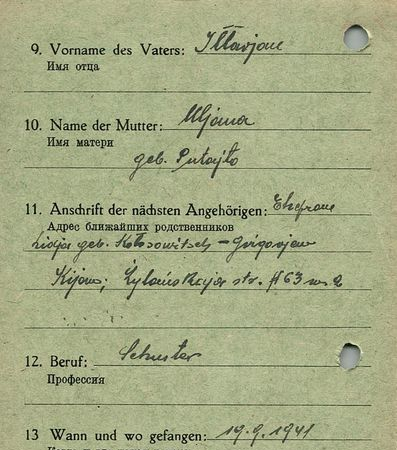 9. Vorname des Vaters:
Имя отца
10. Name der Mutter: Uljana
Имя матери
geb.
11. Anschrift der nächsten Angehörigen: Ehefrau
Адрес ближайших родственников
Lidja geb.
Kijow; str. # 63 w. 2
12. Beruf: Schuster
Профессия
13 Wann und wo gefangen: 19.9.1941